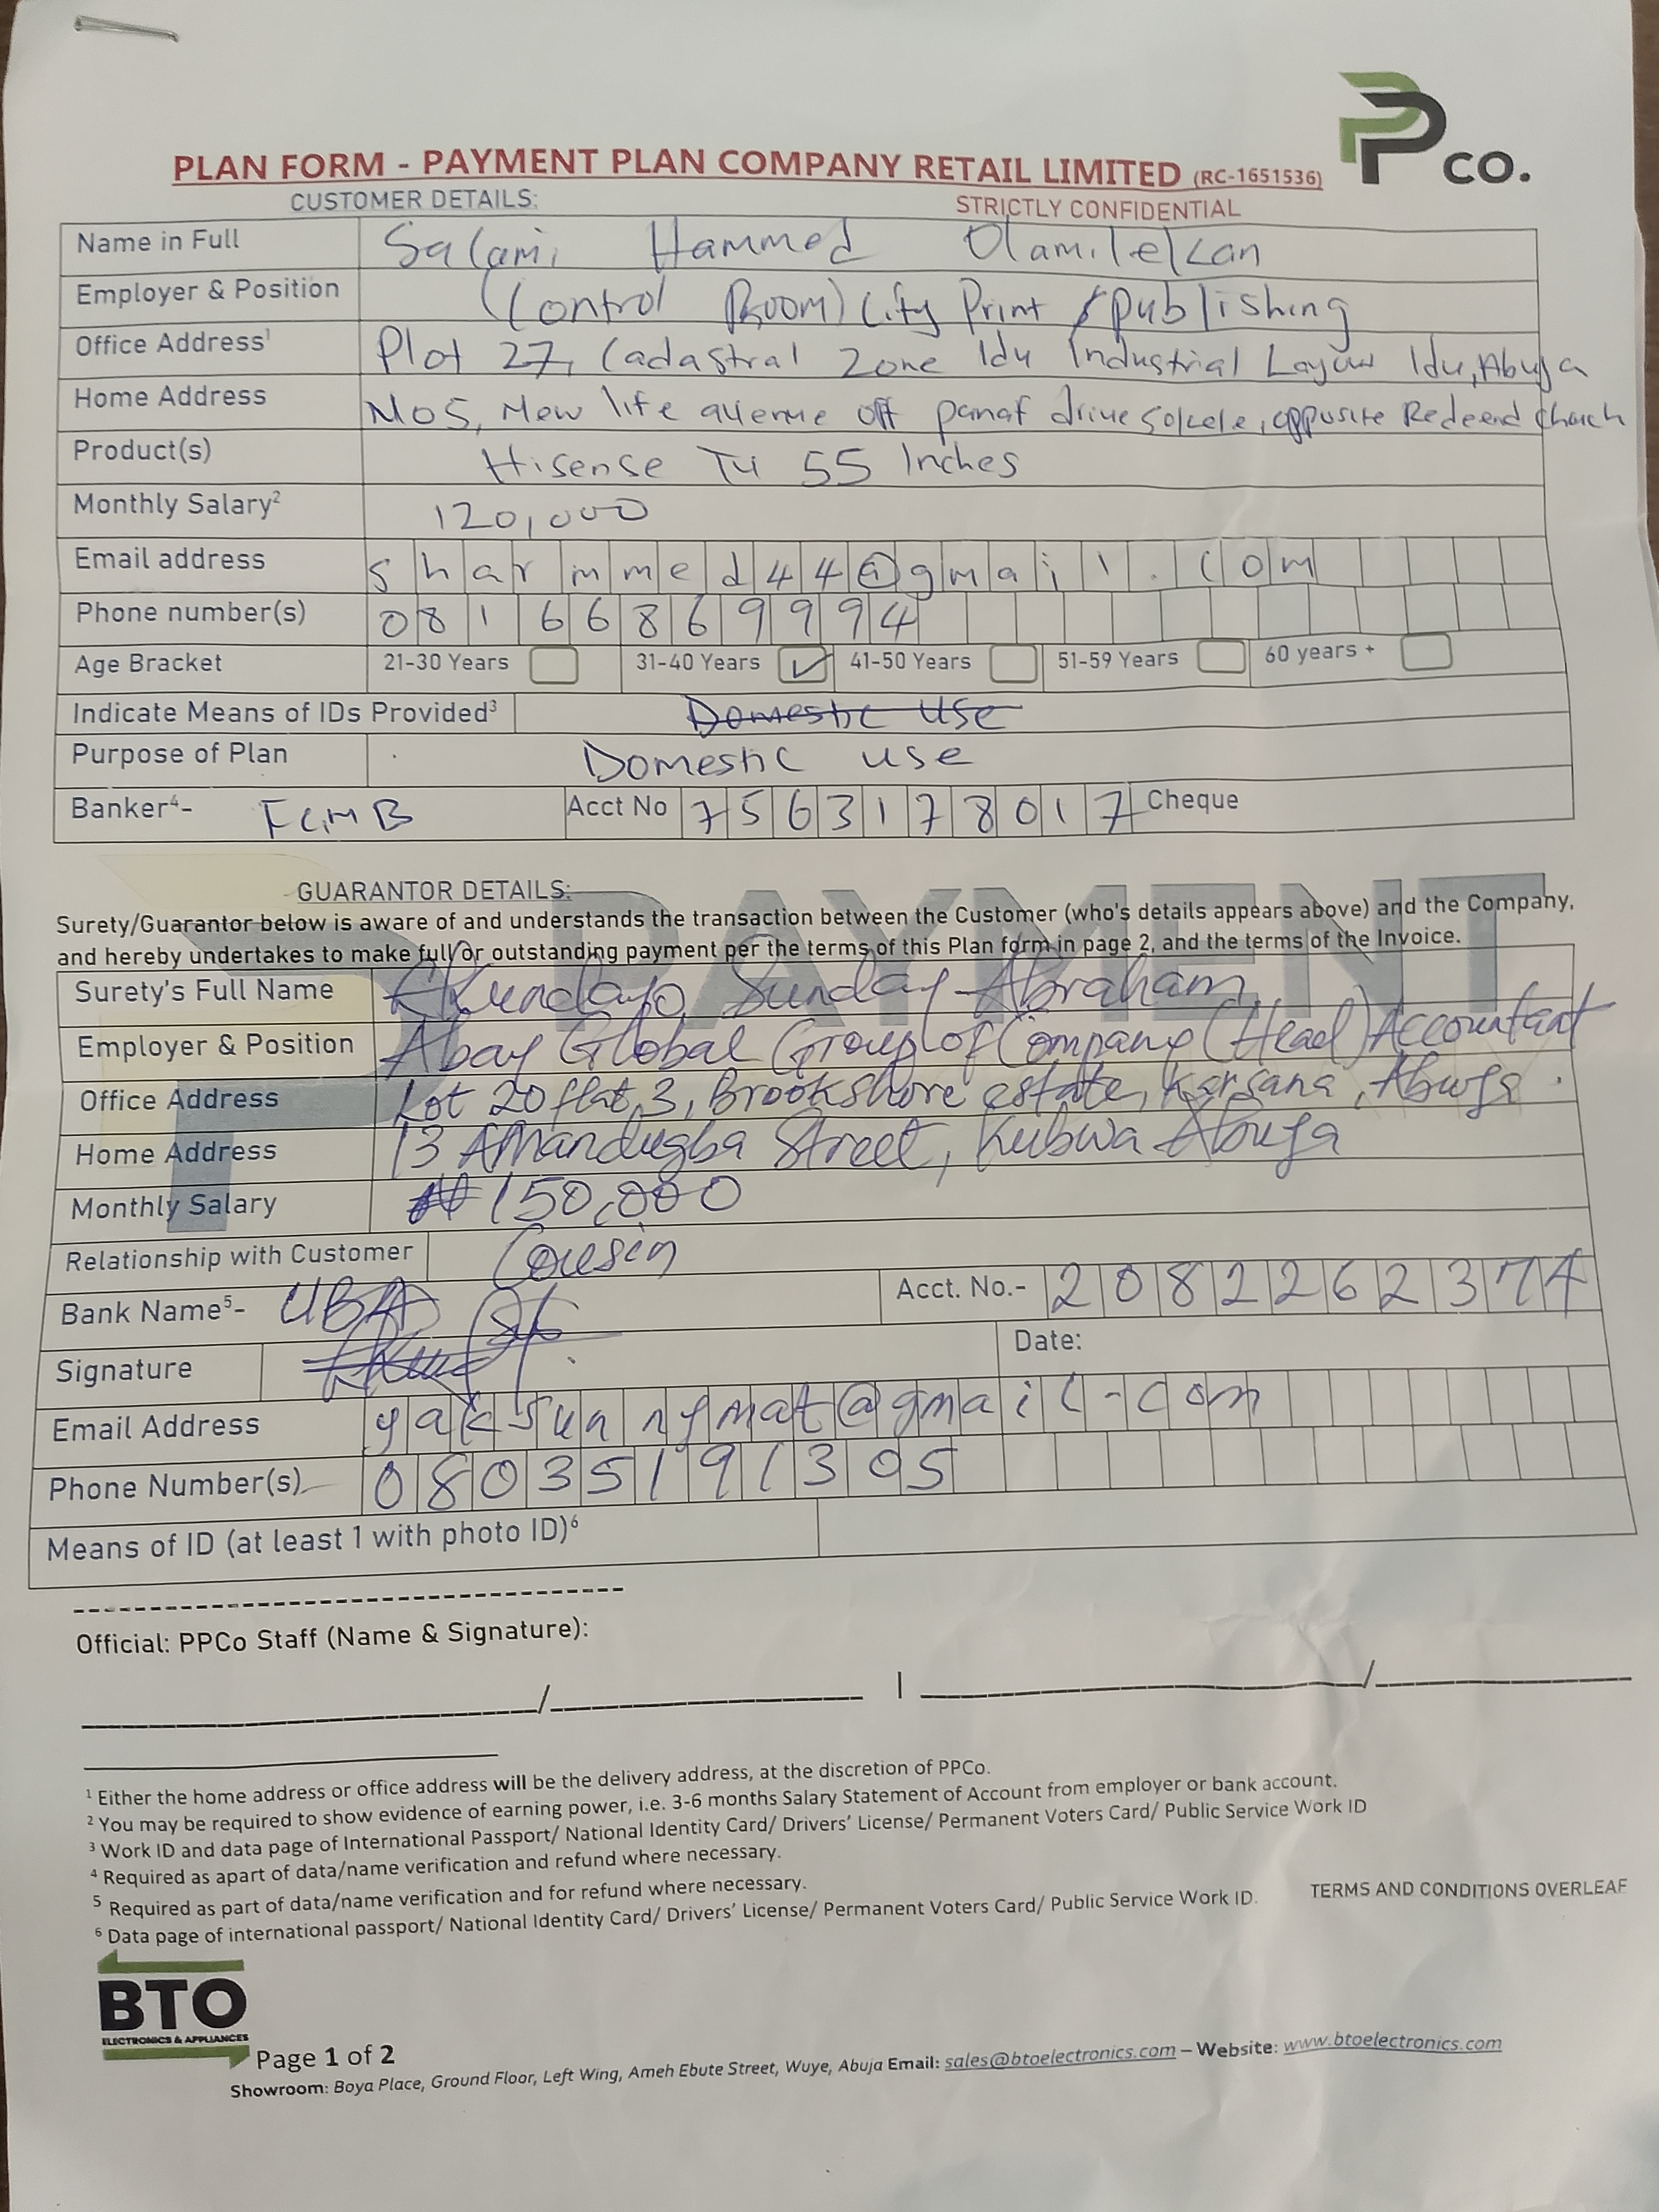 PP CO.
PLAN FORM - PAYMENT PLAN COMPANY RETAIL LIMITED (RC-1651536)
CUSTOMER DETAILS: STRICTLY CONFIDENTIAL
Name in Full Salami Hammed Olamilekan
Employer & Position (Control Room) City Print / publishing
Office Address¹ Plot 27, Cadastral Zone Idu Industrial Layout Idu, Abuja
Home Address No5, New life avenue off panaf drive Gokele, opposite Redeemed church
Product(s) Hisense TV 55 Inches
Monthly Salary² 120,000
Email address sharmmed44@gmail.com
Phone number(s) 08166869994
Age Bracket 21-30 Years 31-40 Years ✓ 41-50 Years 51-59 Years 60 years +
Indicate Means of IDs Provided³ Domestic Use
Purpose of Plan Domestic use
Banker⁴- FCMB Acct No 7563178017 Cheque
PAYMENT
GUARANTOR DETAILS:
Surety/Guarantor below is aware of and understands the transaction between the Customer (who's details appears above) and the Company,
and hereby undertakes to make full/or outstanding payment per the terms of this Plan form in page 2, and the terms of the Invoice.
Surety's Full Name Akundayo Sunday Abraham
Employer & Position Abay Global Group of Company (Head) Accountant
Office Address Lot 20 flat 3, Brookshore estate, Karsana, Abuja.
Home Address 13 Amandugba Street, Kubwa Abuja
Monthly Salary ₦150,000
Relationship with Customer Cousin
Bank Name⁵- UBA Acct. No.- 2082262374
Signature Date:
Email Address yaksunnymat@gmail-com
Phone Number(s) 08035191305
Means of ID (at least 1 with photo ID)⁶
Official: PPCo Staff (Name & Signature):
¹ Either the home address or office address will be the delivery address, at the discretion of PPCo.
² You may be required to show evidence of earning power, i.e. 3-6 months Salary Statement of Account from employer or bank account.
³ Work ID and data page of International Passport/ National Identity Card/ Drivers' License/ Permanent Voters Card/ Public Service Work ID
⁴ Required as apart of data/name verification and refund where necessary.
⁵ Required as part of data/name verification and for refund where necessary.
⁶ Data page of international passport/ National Identity Card/ Drivers' License/ Permanent Voters Card/ Public Service Work ID.
TERMS AND CONDITIONS OVERLEAF
BTO
ELECTRONICS & APPLIANCES
Page 1 of 2
Showroom: Boya Place, Ground Floor, Left Wing, Ameh Ebute Street, Wuye, Abuja Email: sales@btoelectronics.com – Website: www.btoelectronics.com